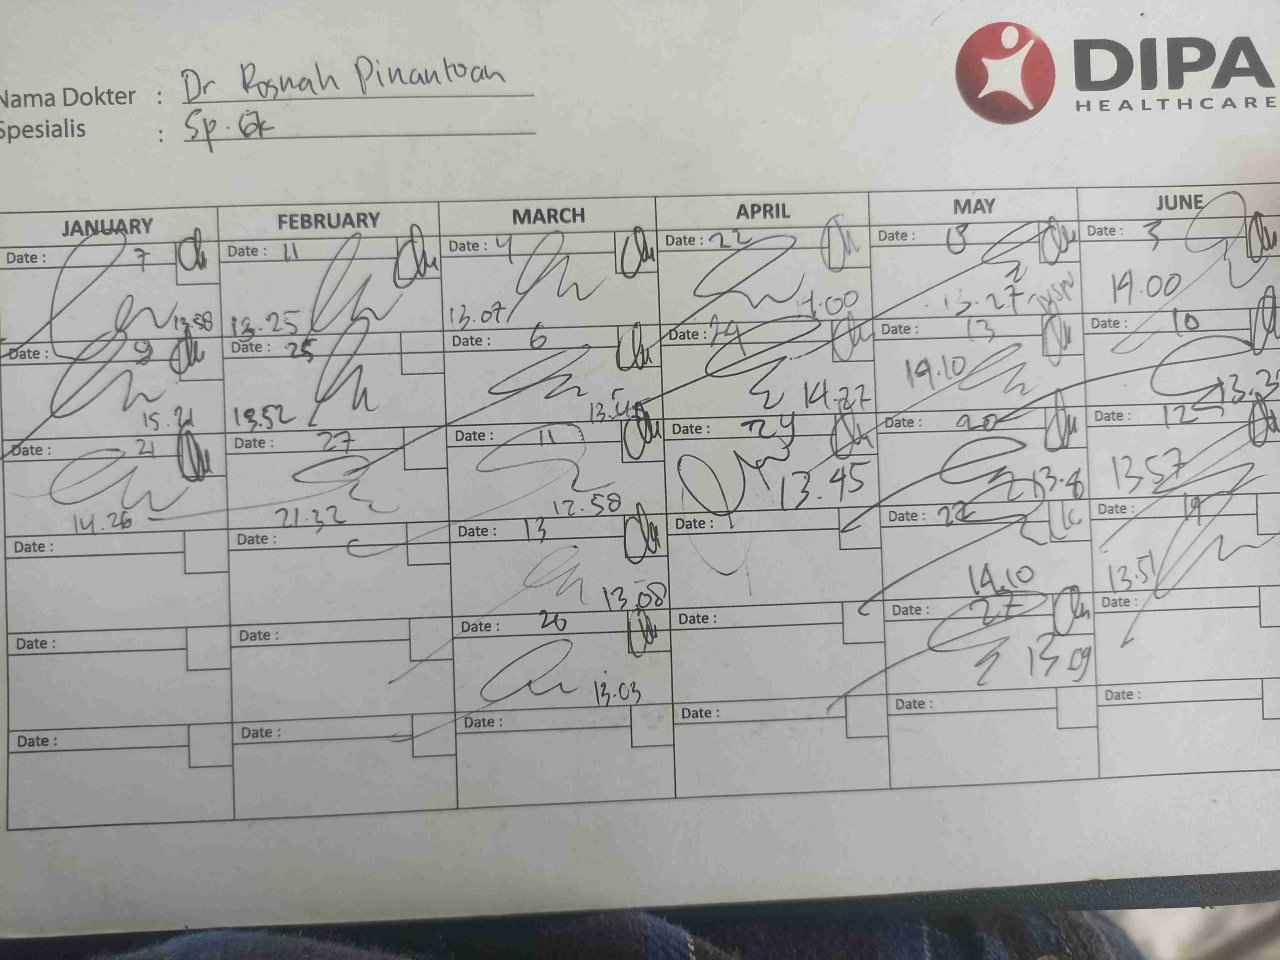 DIPA
HEALTHCARE
Nama Dokter : Dr Rosnah Pinantoan
Spesialis : Sp.GK
JANUARY FEBRUARY MARCH APRIL MAY JUNE
Date : 7 Date : 11 Date : 4 Date : 22 Date : Date : 3
13.58 13.25 13.07 14.00 13.27 14.00
Date : 9 Date : 25 Date : 6 Date : 24 Date : 13 Date : 10
15.21 13.52 14.27 14.10
Date : 21 Date : 27 Date : 11 Date : 29 Date : 20 Date : 12
14.26 21.32 12.58 13.45 13.57
Date : Date : Date : 13 Date : Date : 22 Date : 19
13.08 14.10 13.51
Date : Date : Date : 20 Date : Date : 27 Date :
13.03 13 09
Date : Date : Date : Date : Date : Date :